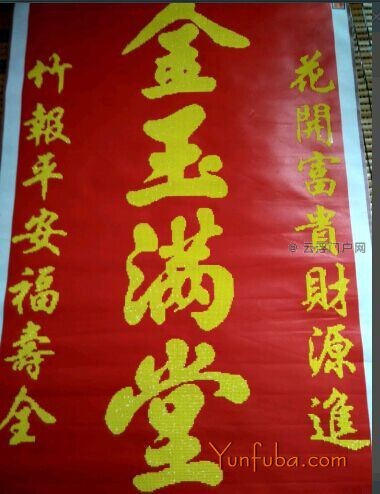 花開富貴財源進
金玉滿堂
竹報平安福壽全
@ 云浮门户网
Yunfuba.com